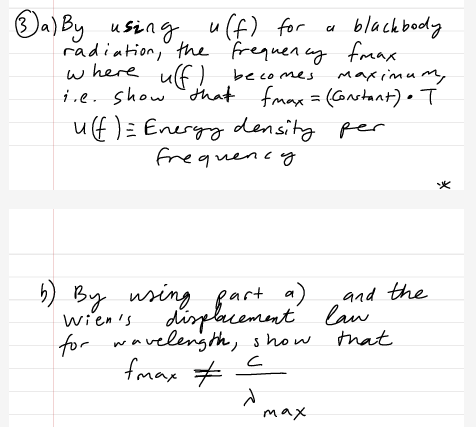 ③a) By using u(f) for a blackbody
radiation, the frequency fmax
where u(f) becomes maximum,
i.e. show that fmax = (Constant) • T
u(f) ≡ Energy density per
frequency
*
b) By using part a) and the
Wien's displacement law
for wavelength, show that
fmax ≠ c/λmax